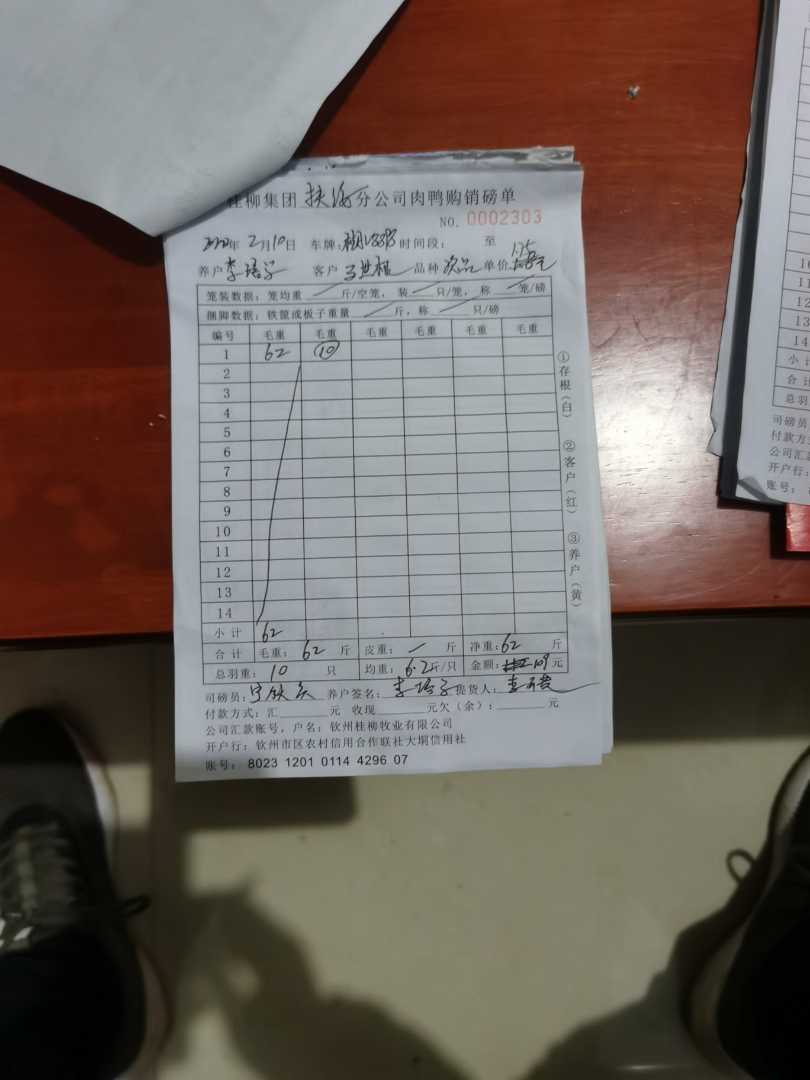 桂柳集团 扶绥 分公司肉鸭购销磅单
NO. 0002303
年 2月10日 车牌: 时间段: 至
养户 李 客户 品种 次品 单价 1.75
笼装数据: 笼均重 斤/空笼, 装 只/笼, 称 笼/磅
捆脚数据: 铁筐或板子重量 斤, 称 只/磅
编号 毛重 毛重 毛重 毛重 毛重 毛重
1 62 10
2
3
4
5
6
7
8
9
10
11
12
13
14
小计 62
合计 毛重: 62 斤 皮重: 斤 净重: 62 斤
总羽重: 10 只 均重: 6.2 斤/只 金额: 109 元
司磅员: 养户签名: 李 提货人:
付款方式: 汇 元 收现 元欠(余): 元
公司汇款账号, 户名: 钦州桂柳牧业有限公司
开户行: 钦州市区农村信用合作联社大垌信用社
账号: 8023 1201 0114 4296 07
①存根(白) ②客户(红) ③养户(黄)
10
11
12
13
14
小计
合计
总羽
司磅员
付款方式
公司汇
开户行:
账号: